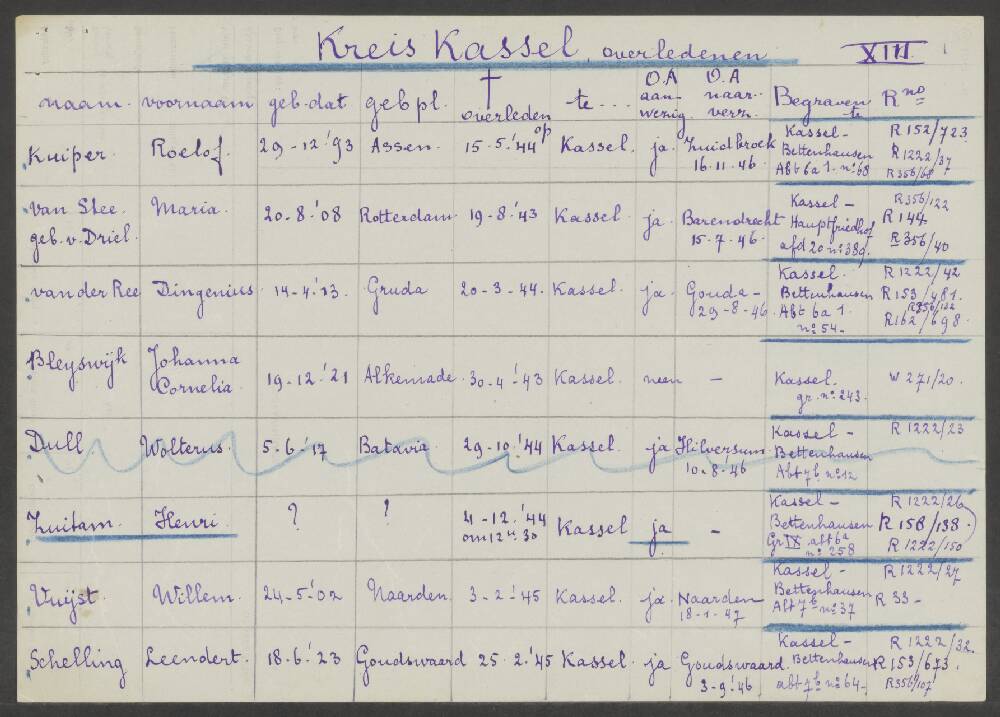 Kreis Kassel overledenen XIII 1
naam. voornaam geb.dat geb pl. † overleden op te... O.A aanwezig. O.A naar verz. Begraven te R no
Kuiper. Roelof. 29-12-'93 Assen. 15-5-'44 Kassel. ja. Zuidbroek Kassel- R152/723
16.11.46. Bettenhausen R1222/37
Abt 6a 1. no 68 R356/68
van Slee. Maria. 20-8-'08 Rotterdam. 19-8-'43 Kassel ja. Barendrecht Kassel- R356/122
geb. v. Driel. 15.7.46. Hauptfriedhof R144
afd 20 no 389. R356/40
van der Ree Dingenius 14-4-'23. Gruda 20-3-44. Kassel. ja. Gouda- Kassel. R1222/42
29-8-46. Bettenhausen R153/481.
Abt 6a 1. R356/122
no 54- R162/698.
Bleyswijk Johanna Cornelia. 19-12.'21 Alkemade. 30-4-'43 Kassel. neen - Kassel. W 271/20.
gr. no 243.
Dull. Wolterus. 5-6-'17 Batavia. 29-10.'44 Kassel. ja Hilversum Kassel- R1222/23
10.8-46 Bettenhausen
Abt 7b no 12
Zuitam. Henri. ? ? 4-12.'44 Kassel ja - Kassel- R1222/26
om 12 u. 30 Bettenhausen R158/138.
Gr IX abt 6a R1222/150
no 258
Vuijst. Willem. 24-5-'02 Naarden. 3-2-'45 Kassel. ja. Naarden Kassel- R1222/27
18-1-47 Bettenhausen R33-
Abt 7b no 37
Schelling Leendert. 18.6.'23 Goudswaard 25.2.'45 Kassel ja Goudswaard. Kassel- R1222/32.
3-9.'46. Bettenhausen R153/673.
abt 7b no 64- R356/107